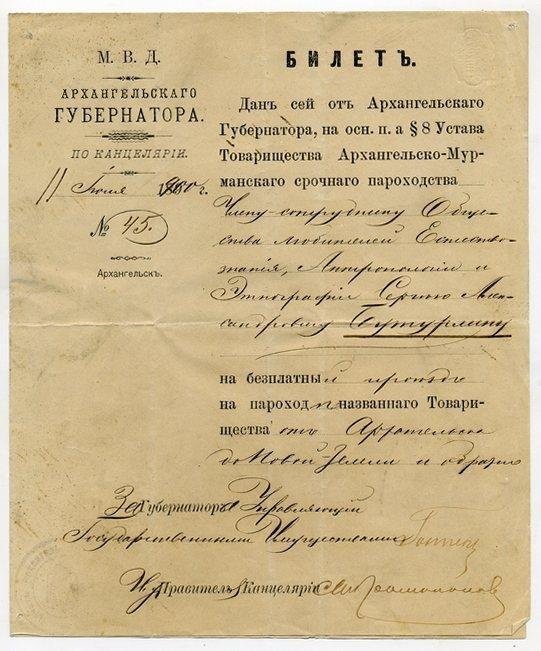 М. В. Д.
АРХАНГЕЛЬСКАГО
ГУБЕРНАТОРА.
ПО КАНЦЕЛЯРІИ.
11 Іюля 1900 г.
№ 45.
Архангельскъ.
БИЛЕТЪ.
Данъ сей отъ Архангельскаго
Губернатора, на осн. п. а § 8 Устава
Товарищества Архангельско-Мур-
манскаго срочнаго пароходства
Члену-сотруднику Обще-
ства любителей Естество-
знанія, Антропологіи и
Этнографіи Сергѣю Алек-
сандровичу Бутурлину
на безплатный проѣздъ
на пароходѣ названнаго Товари-
щества отъ Архангельска
до Новой-Земли и обратно
За Губернатора Управляющій
Государственными Имуществами
И. д. Правителя Канцеляріи